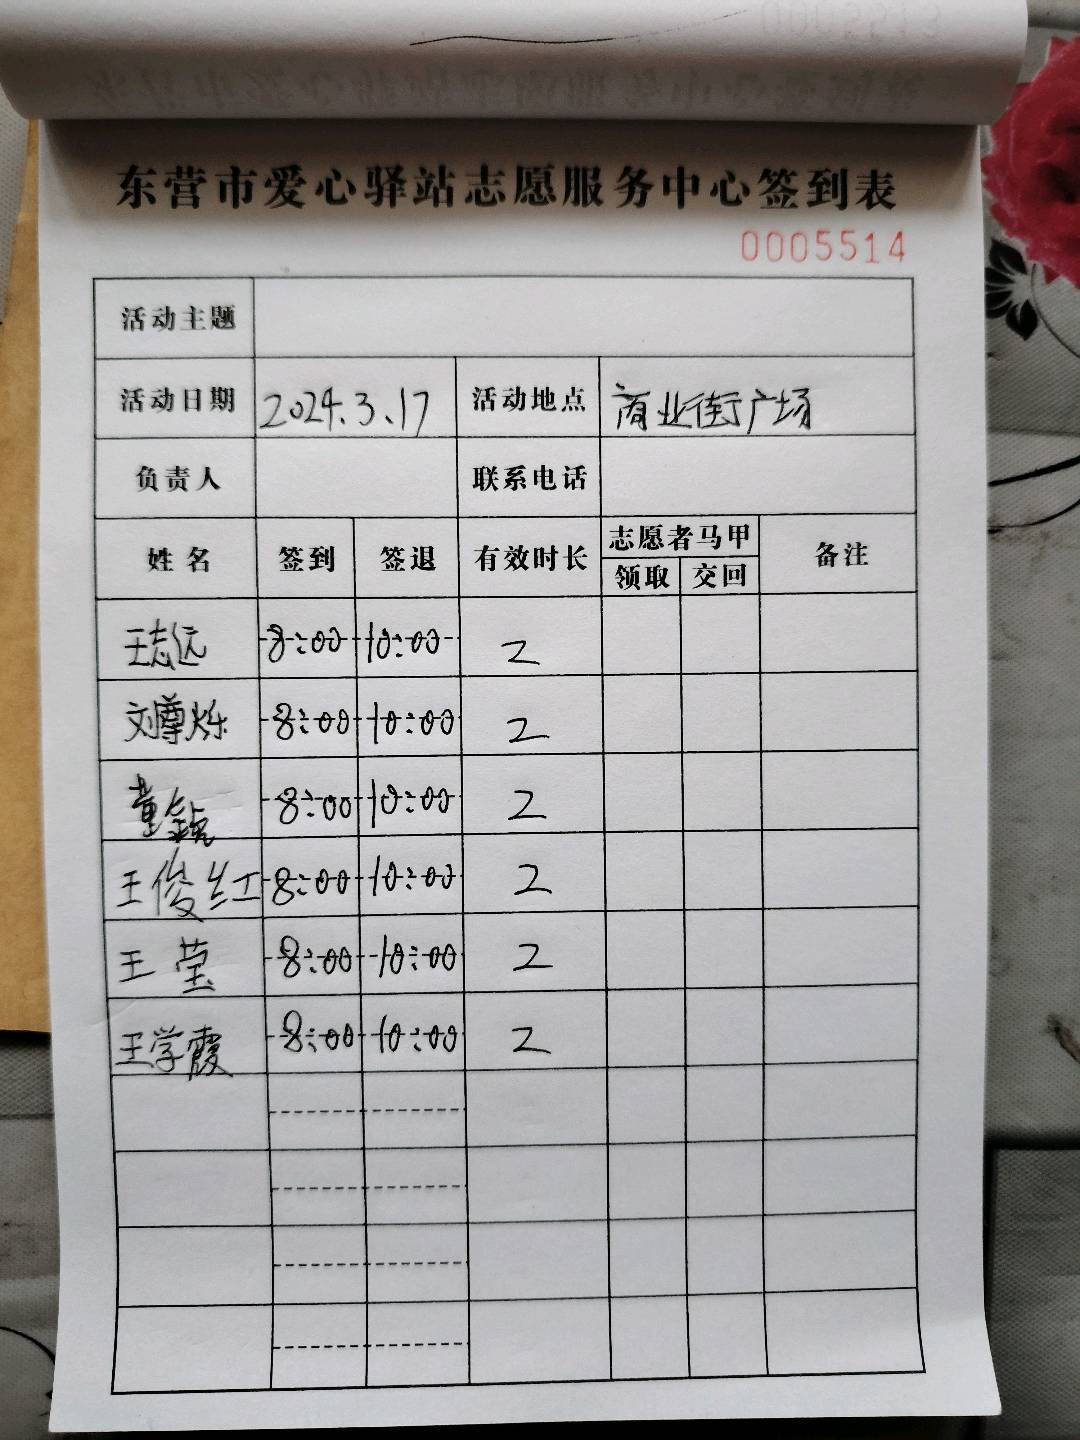 东营市爱心驿站志愿服务中心签到表
0005514
活动主题
活动日期 2024.3.17 活动地点 商业街广场
负责人 联系电话
姓名 签到 签退 有效时长 志愿者马甲 备注
领取 交回
王志远 8:00 10:00 2
刘尊烁 8:00 10:00 2
董锐 8:00 10:00 2
王俊红 8:00 10:00 2
王莹 8:00 10:00 2
王学霞 8:00 10:00 2